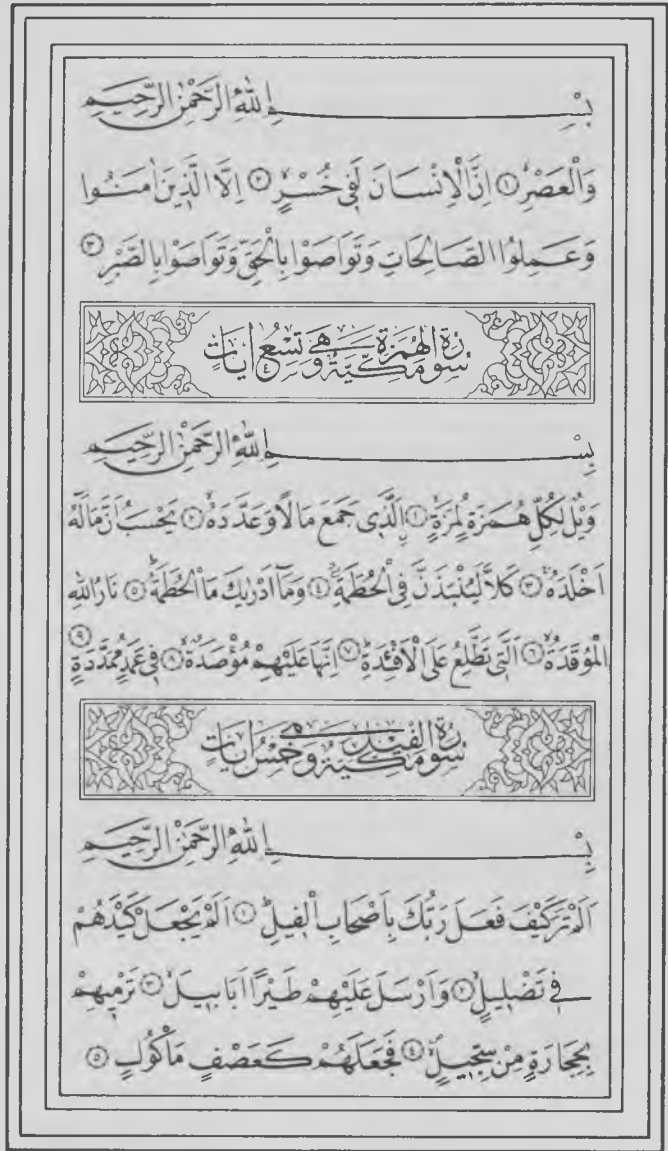 بِسْــــــــــمِ اللهِ الرَّحْمٰنِ الرَّحِيمِ
وَالْعَصْرِۙ ﴿١﴾ اِنَّ الْاِنْسَانَ لَفٖي خُسْرٍۙ ﴿٢﴾ اِلَّا الَّذٖينَ اٰمَنُوا
وَعَمِلُوا الصَّالِحَاتِ وَتَوَاصَوْا بِالْحَقِّ وَتَوَاصَوْا بِالصَّبْرِ ﴿٣﴾
سُورَةُ الْهُمَزَةِ مَكِّيَّةٌ وَهِيَ تِسْعُ اٰيَاتٍ
بِسْــــــــــمِ اللهِ الرَّحْمٰنِ الرَّحِيمِ
وَيْلٌ لِكُلِّ هُمَزَةٍ لُمَزَةٍۙ ﴿١﴾ اَلَّذٖي جَمَعَ مَالًا وَعَدَّدَهُۙ ﴿٢﴾ يَحْسَبُ اَنَّ مَالَهُٓ
اَخْلَدَهُۚ ﴿٣﴾ كَلَّا لَيُنْبَذَنَّ فِي الْحُطَمَةِۘ ﴿٤﴾ وَمَٓا اَدْرٰيكَ مَا الْحُطَمَةُۜ ﴿٥﴾ نَارُ اللهِ
الْمُوقَدَةُۙ ﴿٦﴾ اَلَّتٖي تَطَّلِعُ عَلَى الْاَفْـِٔدَةِۜ ﴿٧﴾ اِنَّهَا عَلَيْهِمْ مُؤْصَدَةٌۙ ﴿٨﴾ فٖي عَمَدٍ مُمَدَّدَةٍ ﴿٩﴾
سُورَةُ الْفٖيلِ مَكِّيَّةٌ وَهِيَ خَمْسُ اٰيَاتٍ
بِسْــــــــــمِ اللهِ الرَّحْمٰنِ الرَّحِيمِ
اَلَمْ تَرَ كَيْفَ فَعَلَ رَبُّكَ بِاَصْحَابِ الْفٖيلِۜ ﴿١﴾ اَلَمْ يَجْعَلْ كَيْدَهُمْ
فٖي تَضْلٖيلٍۙ ﴿٢﴾ وَاَرْسَلَ عَلَيْهِمْ طَيْرًا اَبَابٖيلَۙ ﴿٣﴾ تَرْمٖيهِمْ
بِحِجَارَةٍ مِنْ سِجّٖيلٍۙ ﴿٤﴾ فَجَعَلَهُمْ كَعَصْفٍ مَاْكُولٍ ﴿٥﴾